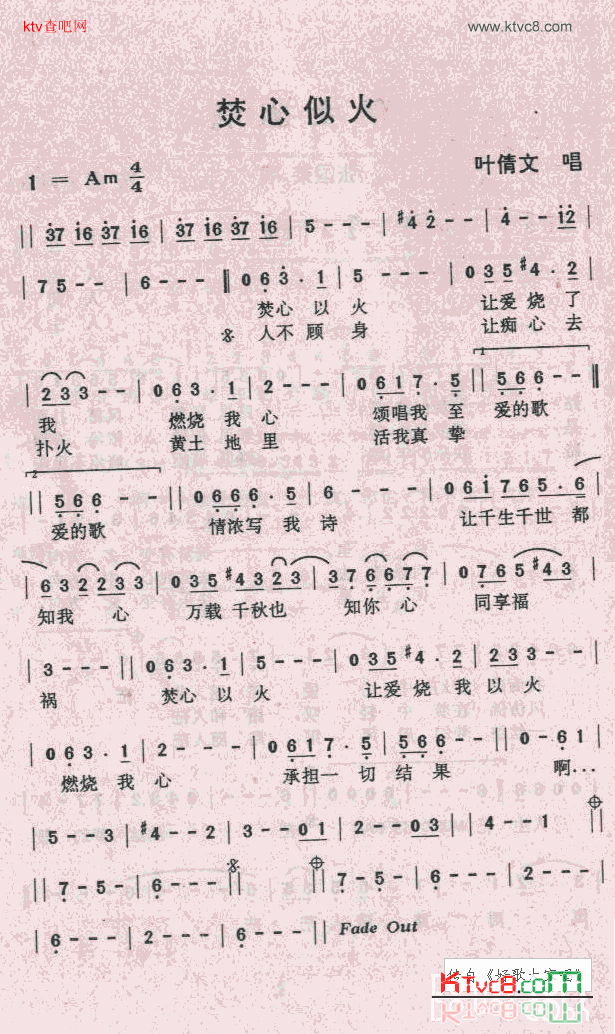 ktv查吧网
www.ktvc8.com
焚心似火
1 = Am 4/4
叶倩文 唱
|| 37 16 37 16 | 37 16 37 16 | 5 - - - | #4 2 - - | 4 - - 12 |
| 7 5 - - | 6 - - - || 0 6 3· 1 | 5 - - - | 0 3 5 #4· 2 |
焚心 以 火 让爱 烧 了
人不 顾 身 让痴 心 去
1
| 2 3 3 - - | 0 6 3· 1 | 2 - - - | 0 6 1 7· 5 || 5 6 6 - - ||
我 燃烧 我 心 颂唱我 至 爱的歌
扑火 黄土 地 里 活我真 挚
2
|| 5 6 6 - - || 0 6 6 6· 5 | 6 - - - | 0 6 1 7 6 5· 6 |
爱的歌 情浓写 我 诗 让千生千世 都
| 6 3 2 2 3 3 | 0 3 5 #4 3 2 3 | 3 7 6 6 7 7 | 0 7 6 5 #4 3 |
知我 心 万载 千秋也 知你 心 同享福
| 3 - - - || 0 6 3· 1 | 5 - - - | 0 3 5 #4· 2 | 2 3 3 - - |
祸 焚心 以 火 让爱 烧 我 以 火
| 0 6 3· 1 | 2 - - - | 0 6 1 7· 5 | 5 6 6 - - || 0 - 6 1 |
燃烧 我 心 承担一 切 结 果 啊…
| 5 - - 3 | #4 - - 2 | 3 - - 0 1 | 2 - - 0 3 | 4 - - 1 ||
|| 7 - 5 - | 6 - - - || || 7 - 5 - | 6 - - - | 2 - - - |
| 6 - - - | 2 - - - | 6 - - - || Fade Out
KTvc8.com